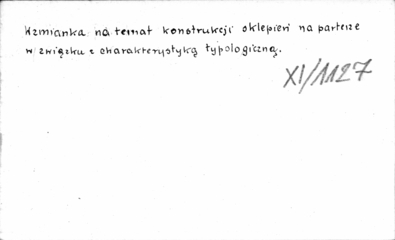 Wzmianka na temat konstrukcji sklepień na parterze
w związku z charakterystyką typologiczną.
XI/1127